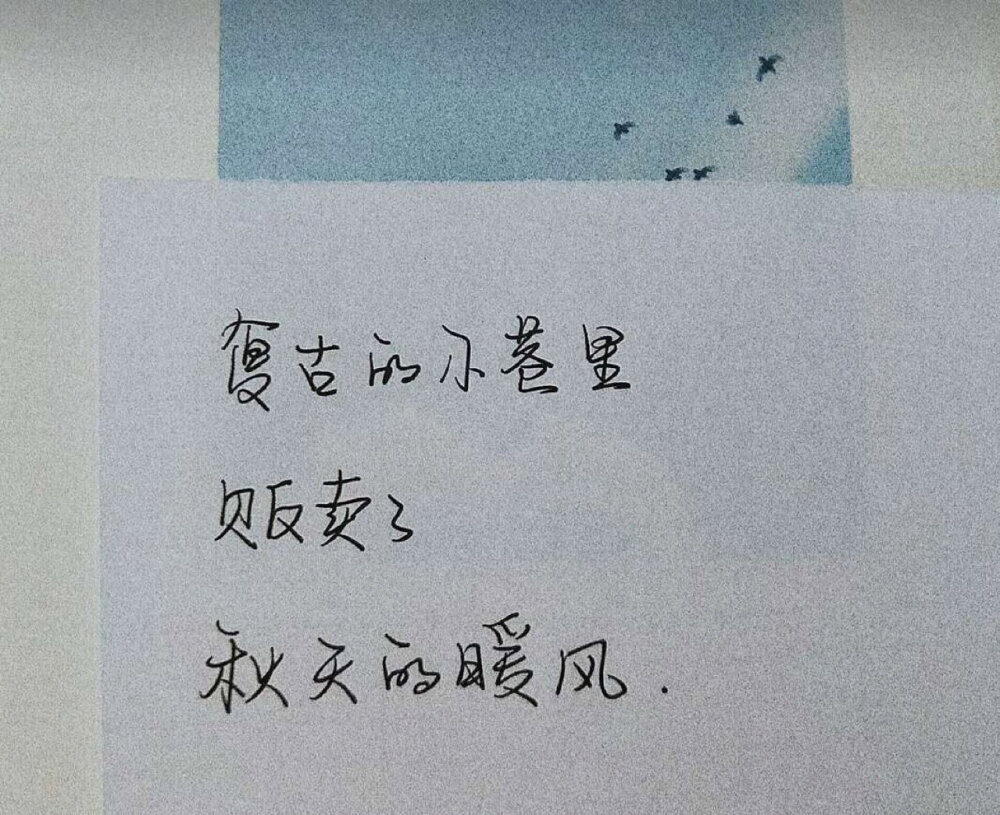 复古的小巷里
贩卖了
秋天的暖风.